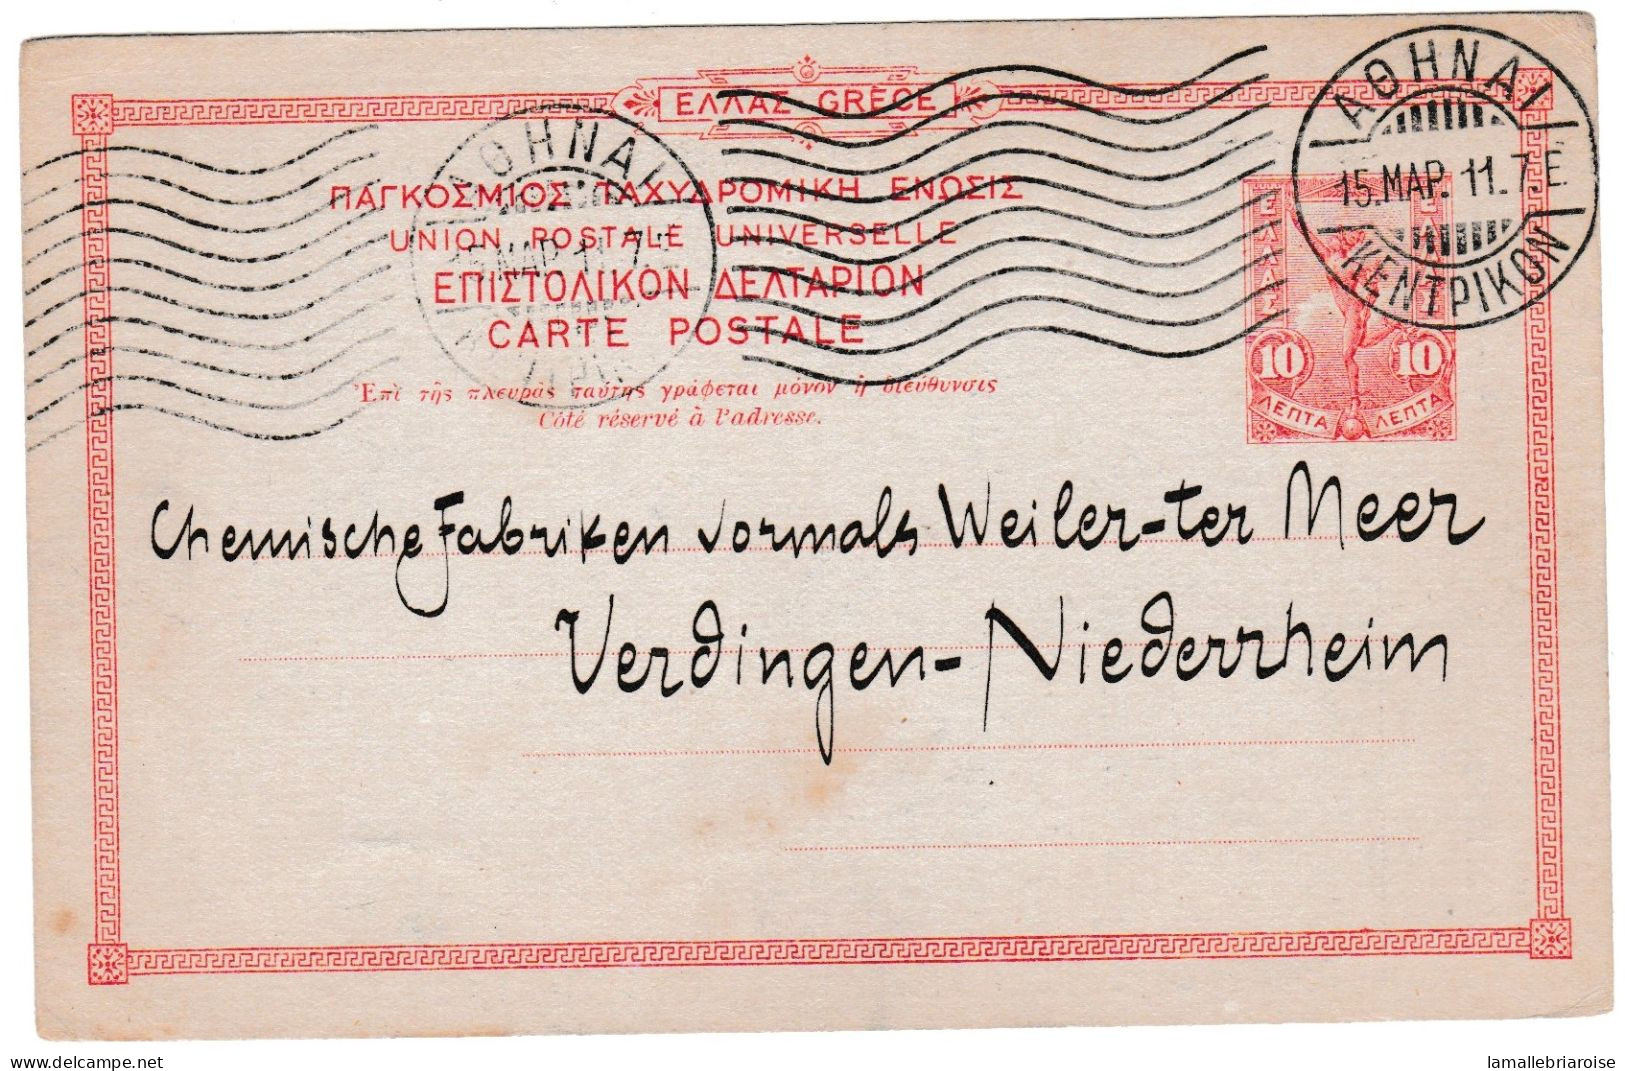 ΕΛΛΑΣ GRÈCE
ΠΑΓΚΟΣΜΙΟΣ ΤΑΧΥΔΡΟΜΙΚΗ ΕΝΩΣΙΣ
UNION POSTALE UNIVERSELLE
ΕΠΙΣΤΟΛΙΚΟΝ ΔΕΛΤΑΡΙΟΝ
CARTE POSTALE
Ἐπὶ τῆς πλευρᾶς ταύτης γράφεται μόνον ἡ διεύθυνσις
Côté réservé à l'adresse.
ΑΘΗΝΑΙ
15.ΜΑΡ.11.7Ε
ΚΕΝΤΡΙΚΟΝ
ΑΘΗΝΑΙ
15 ΜΑΡ 11 7
ΕΛΛΑΣ
10 10
ΛΕΠΤΑ ΛΕΠΤΑ
Chemische Fabriken vormals Weiler-ter Meer
Verdingen-Niederrheim
delcampe.net
lamallebriaroise